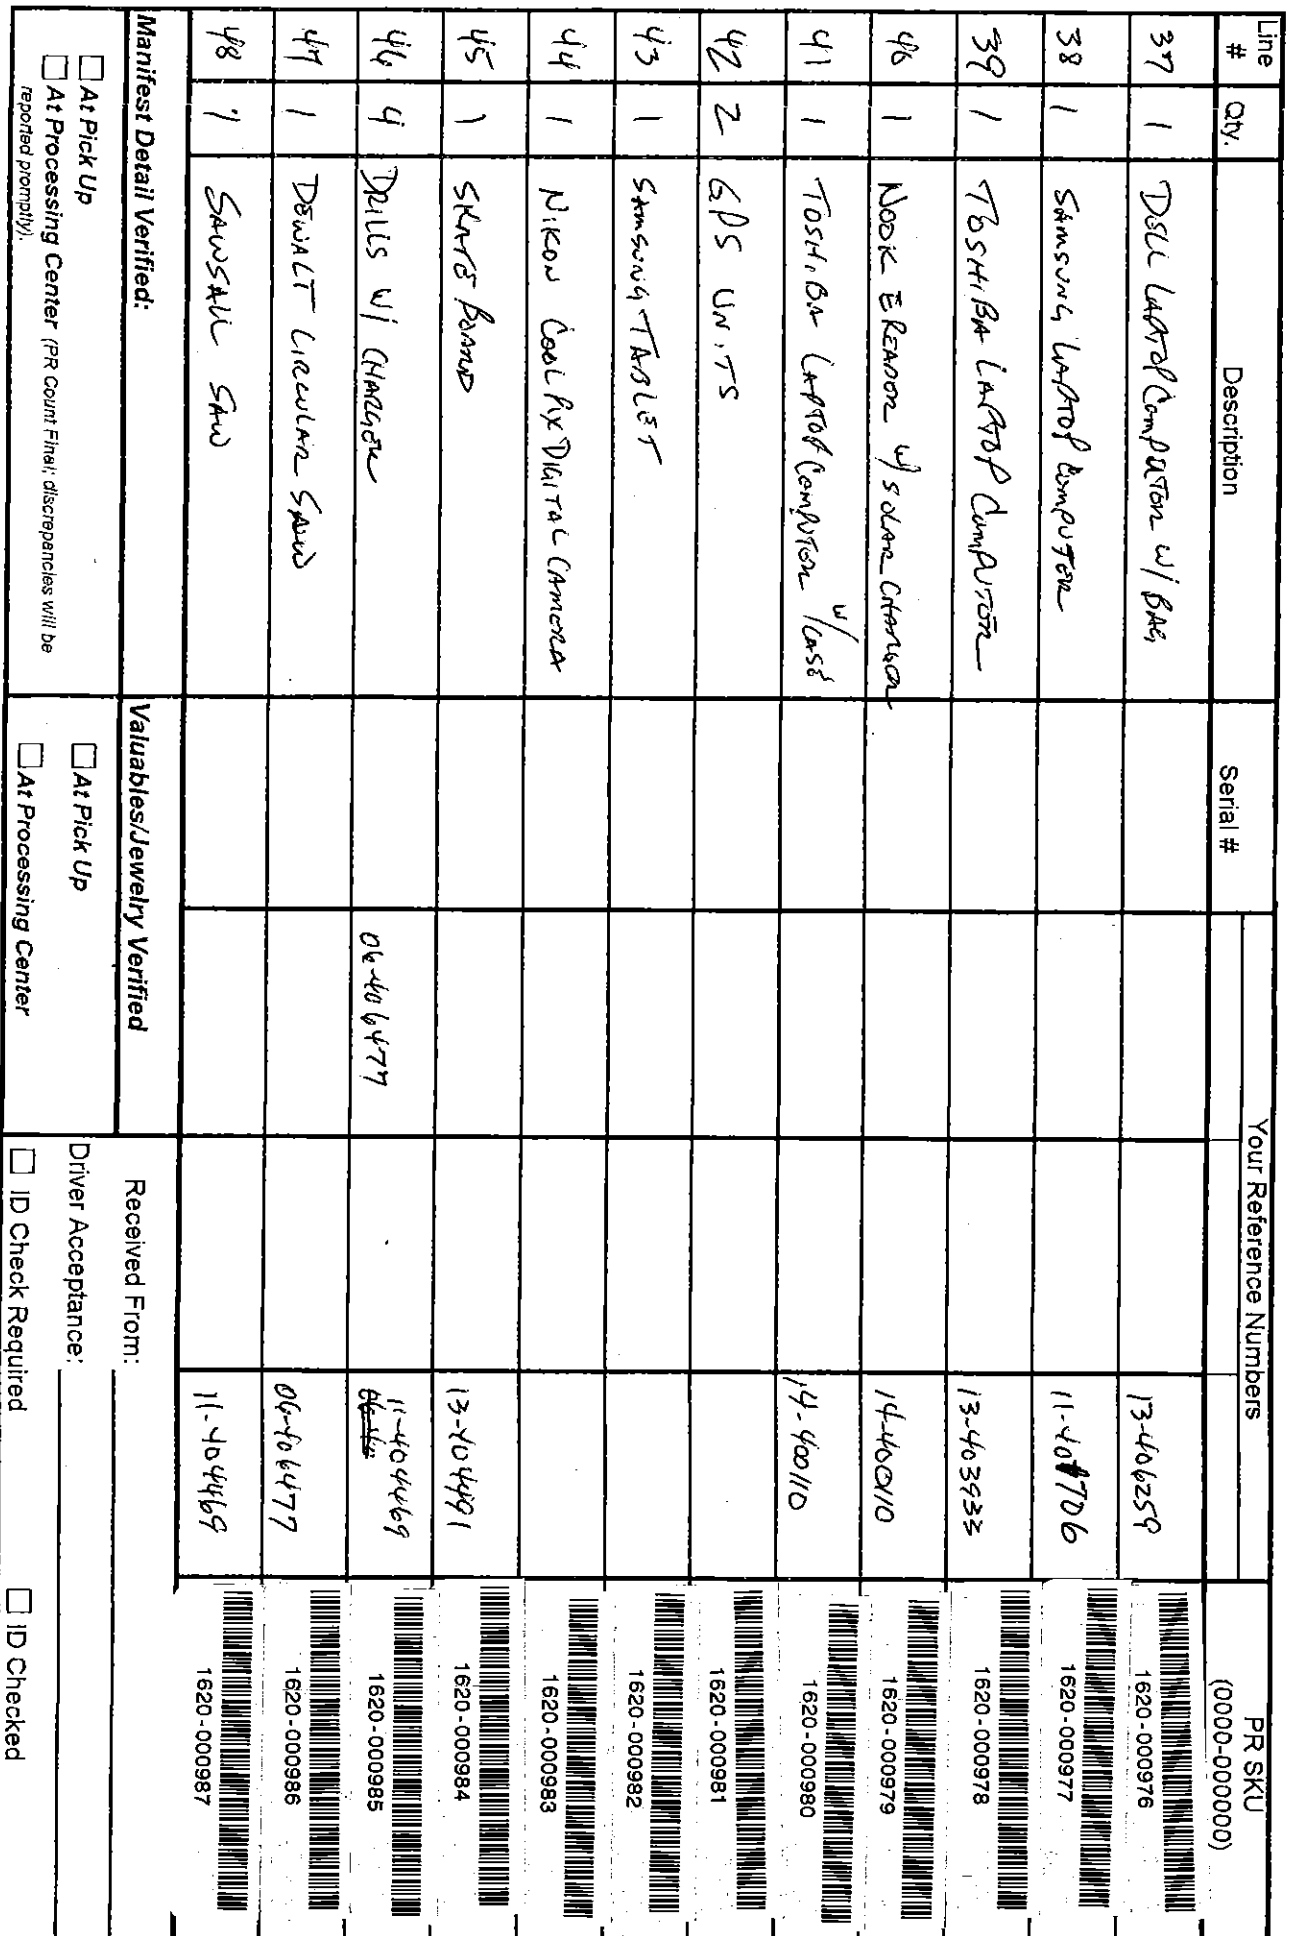 Line # Qty. Description Serial # Your Reference Numbers PR SKU (0000-000000)
37 1 DELL LAPTOP COMPUTER W/ BAG 13-406259 1620-000976
38 1 SAMSUNG LAPTOP COMPUTER 1620-000977
39 1 TOSHIBA LAPTOP COMPUTER 13-403933 1620-000978
40 1 NOOK EREADER W/ SOLAR CHARGER 14-400110 1620-000979
41 1 TOSHIBA LAPTOP COMPUTER W/ CASE 14-400110 1620-000980
42 2 GPS UNITS 1620-000981
43 1 SAMSUNG TABLET 1620-000982
44 1 NIKON COOLPIX DIGITAL CAMERA 1620-000983
45 1 SKATE BOARD 13-404491 1620-000984
46 4 DRILLS W/ CHARGER 06-406477 11-404469 1620-000985
47 1 DEWALT CIRCULAR SAW 06-406477 1620-000986
48 1 SAWSALL SAW 11-404469 1620-000987
Manifest Detail Verified: Valuables/Jewelry Verified Received From:
At Pick Up At Pick Up Driver Acceptance:
At Processing Center (PR Count Final; discrepancies will be reported promptly). At Processing Center ID Check Required ID Checked